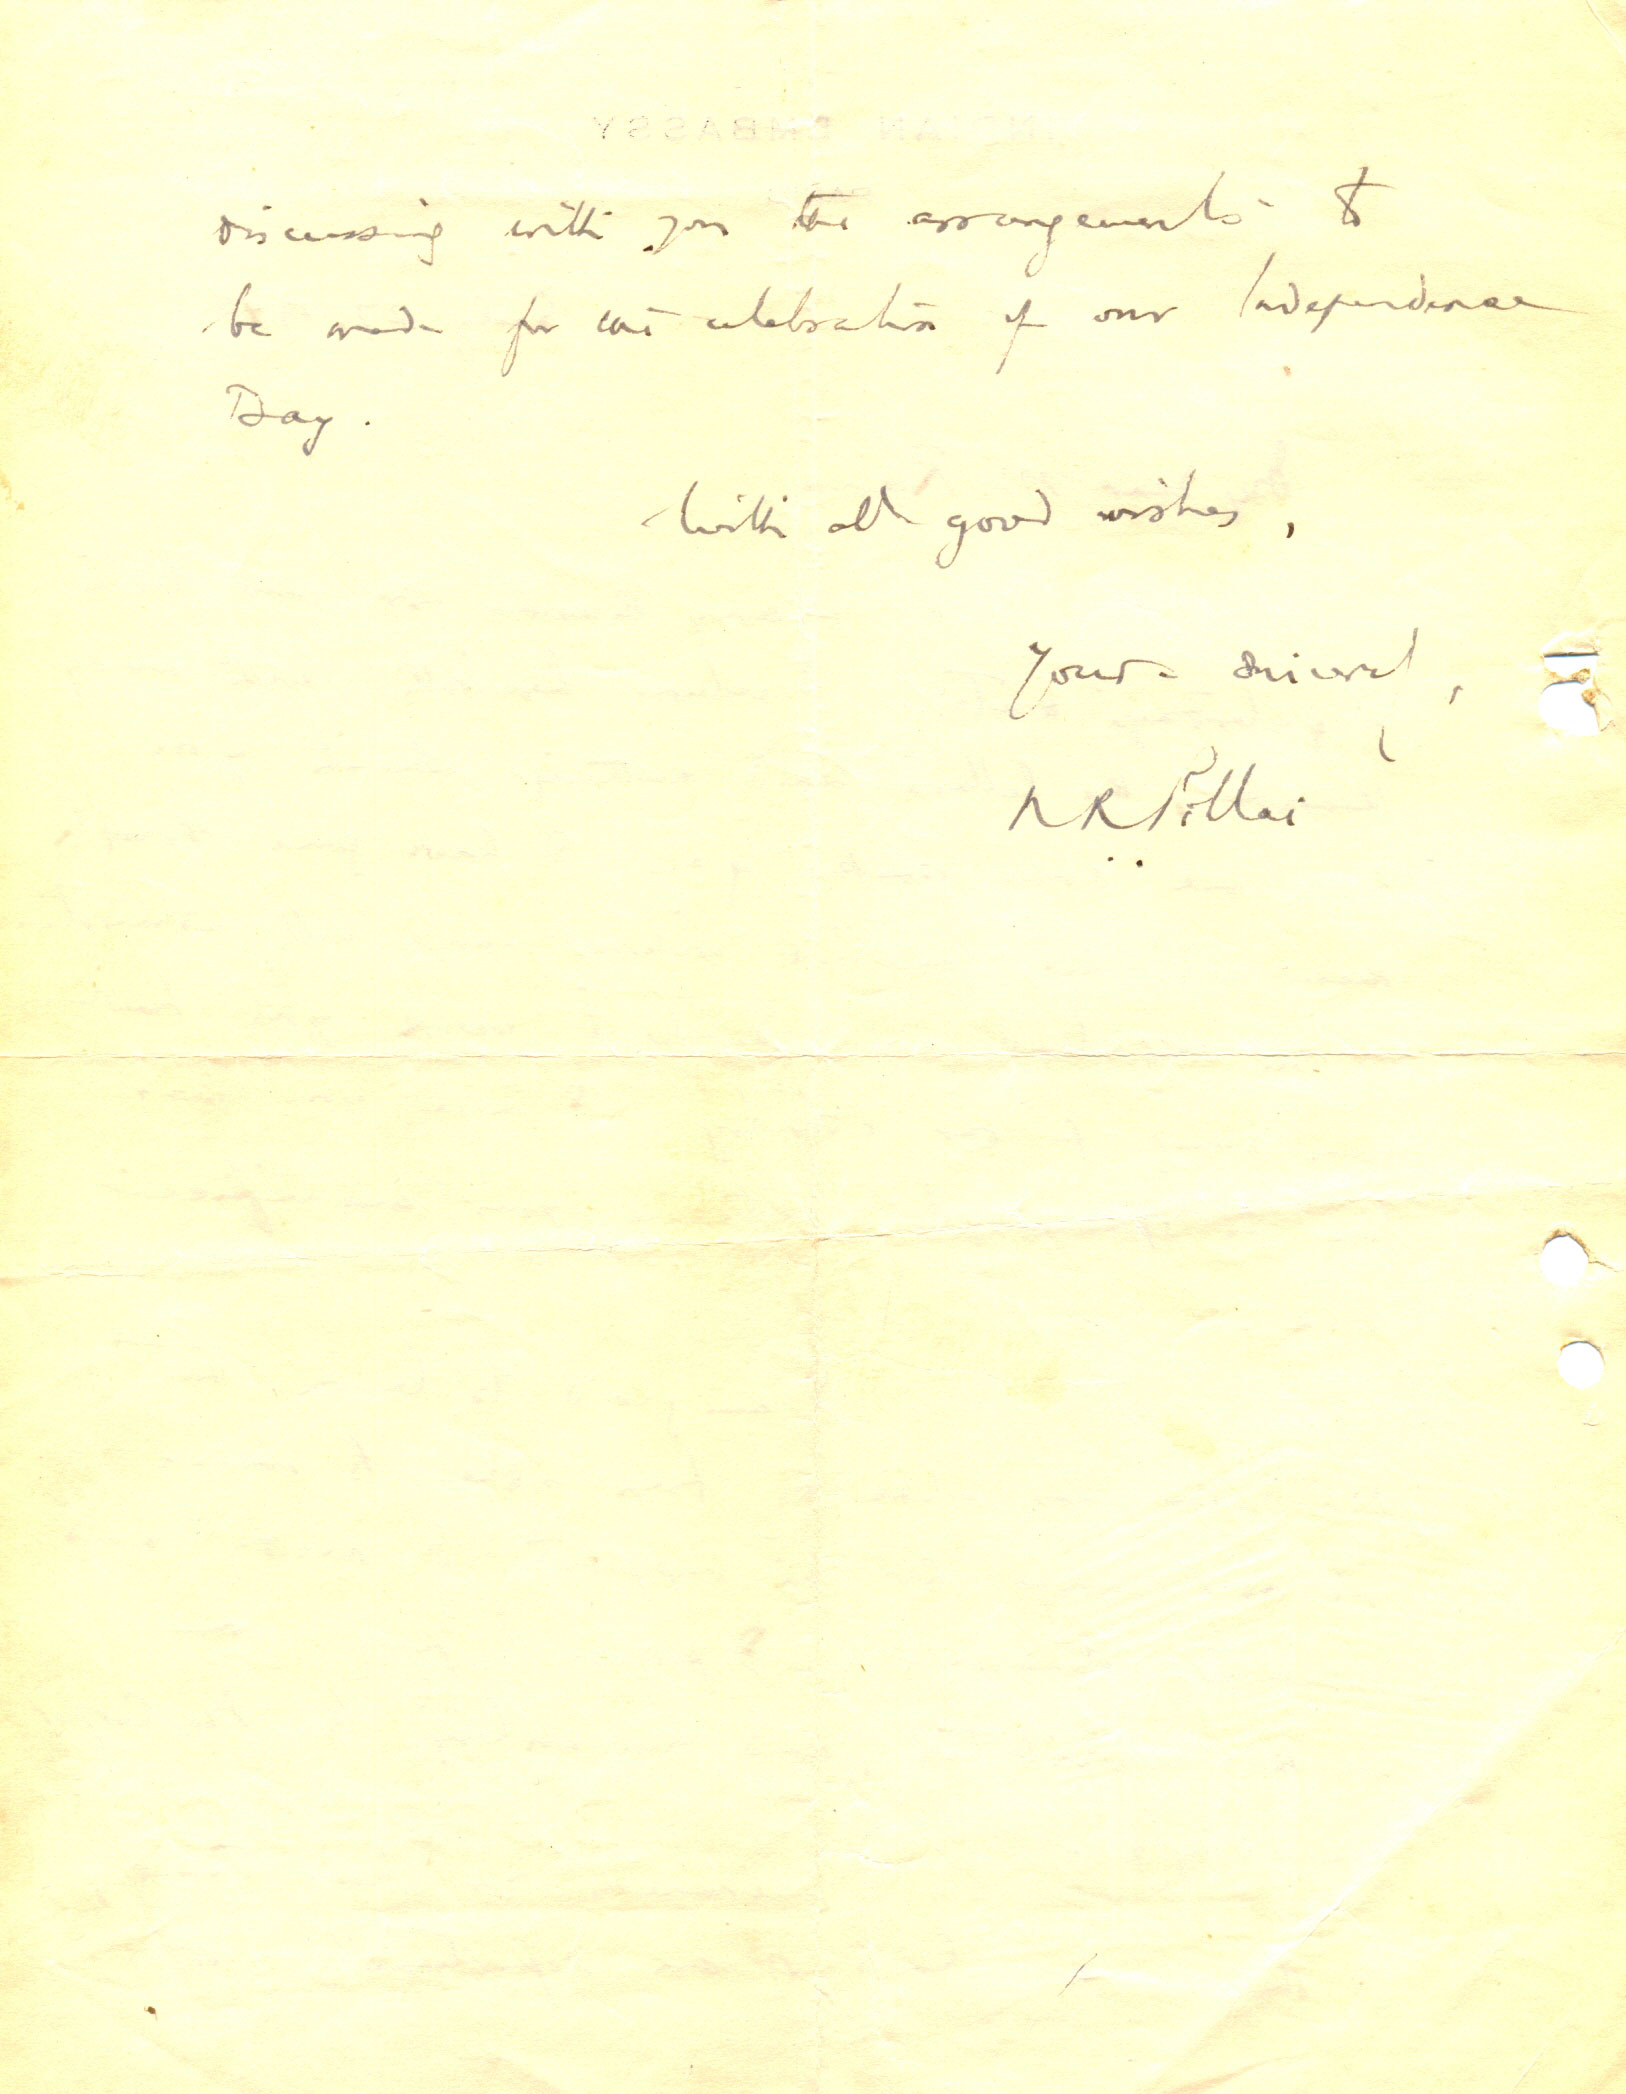 INDIAN EMBASSY
discussing with you the arrangements to
be made for the celebration of our Independence
Day.
With all good wishes,
Yours sincerely,
N R Pillai